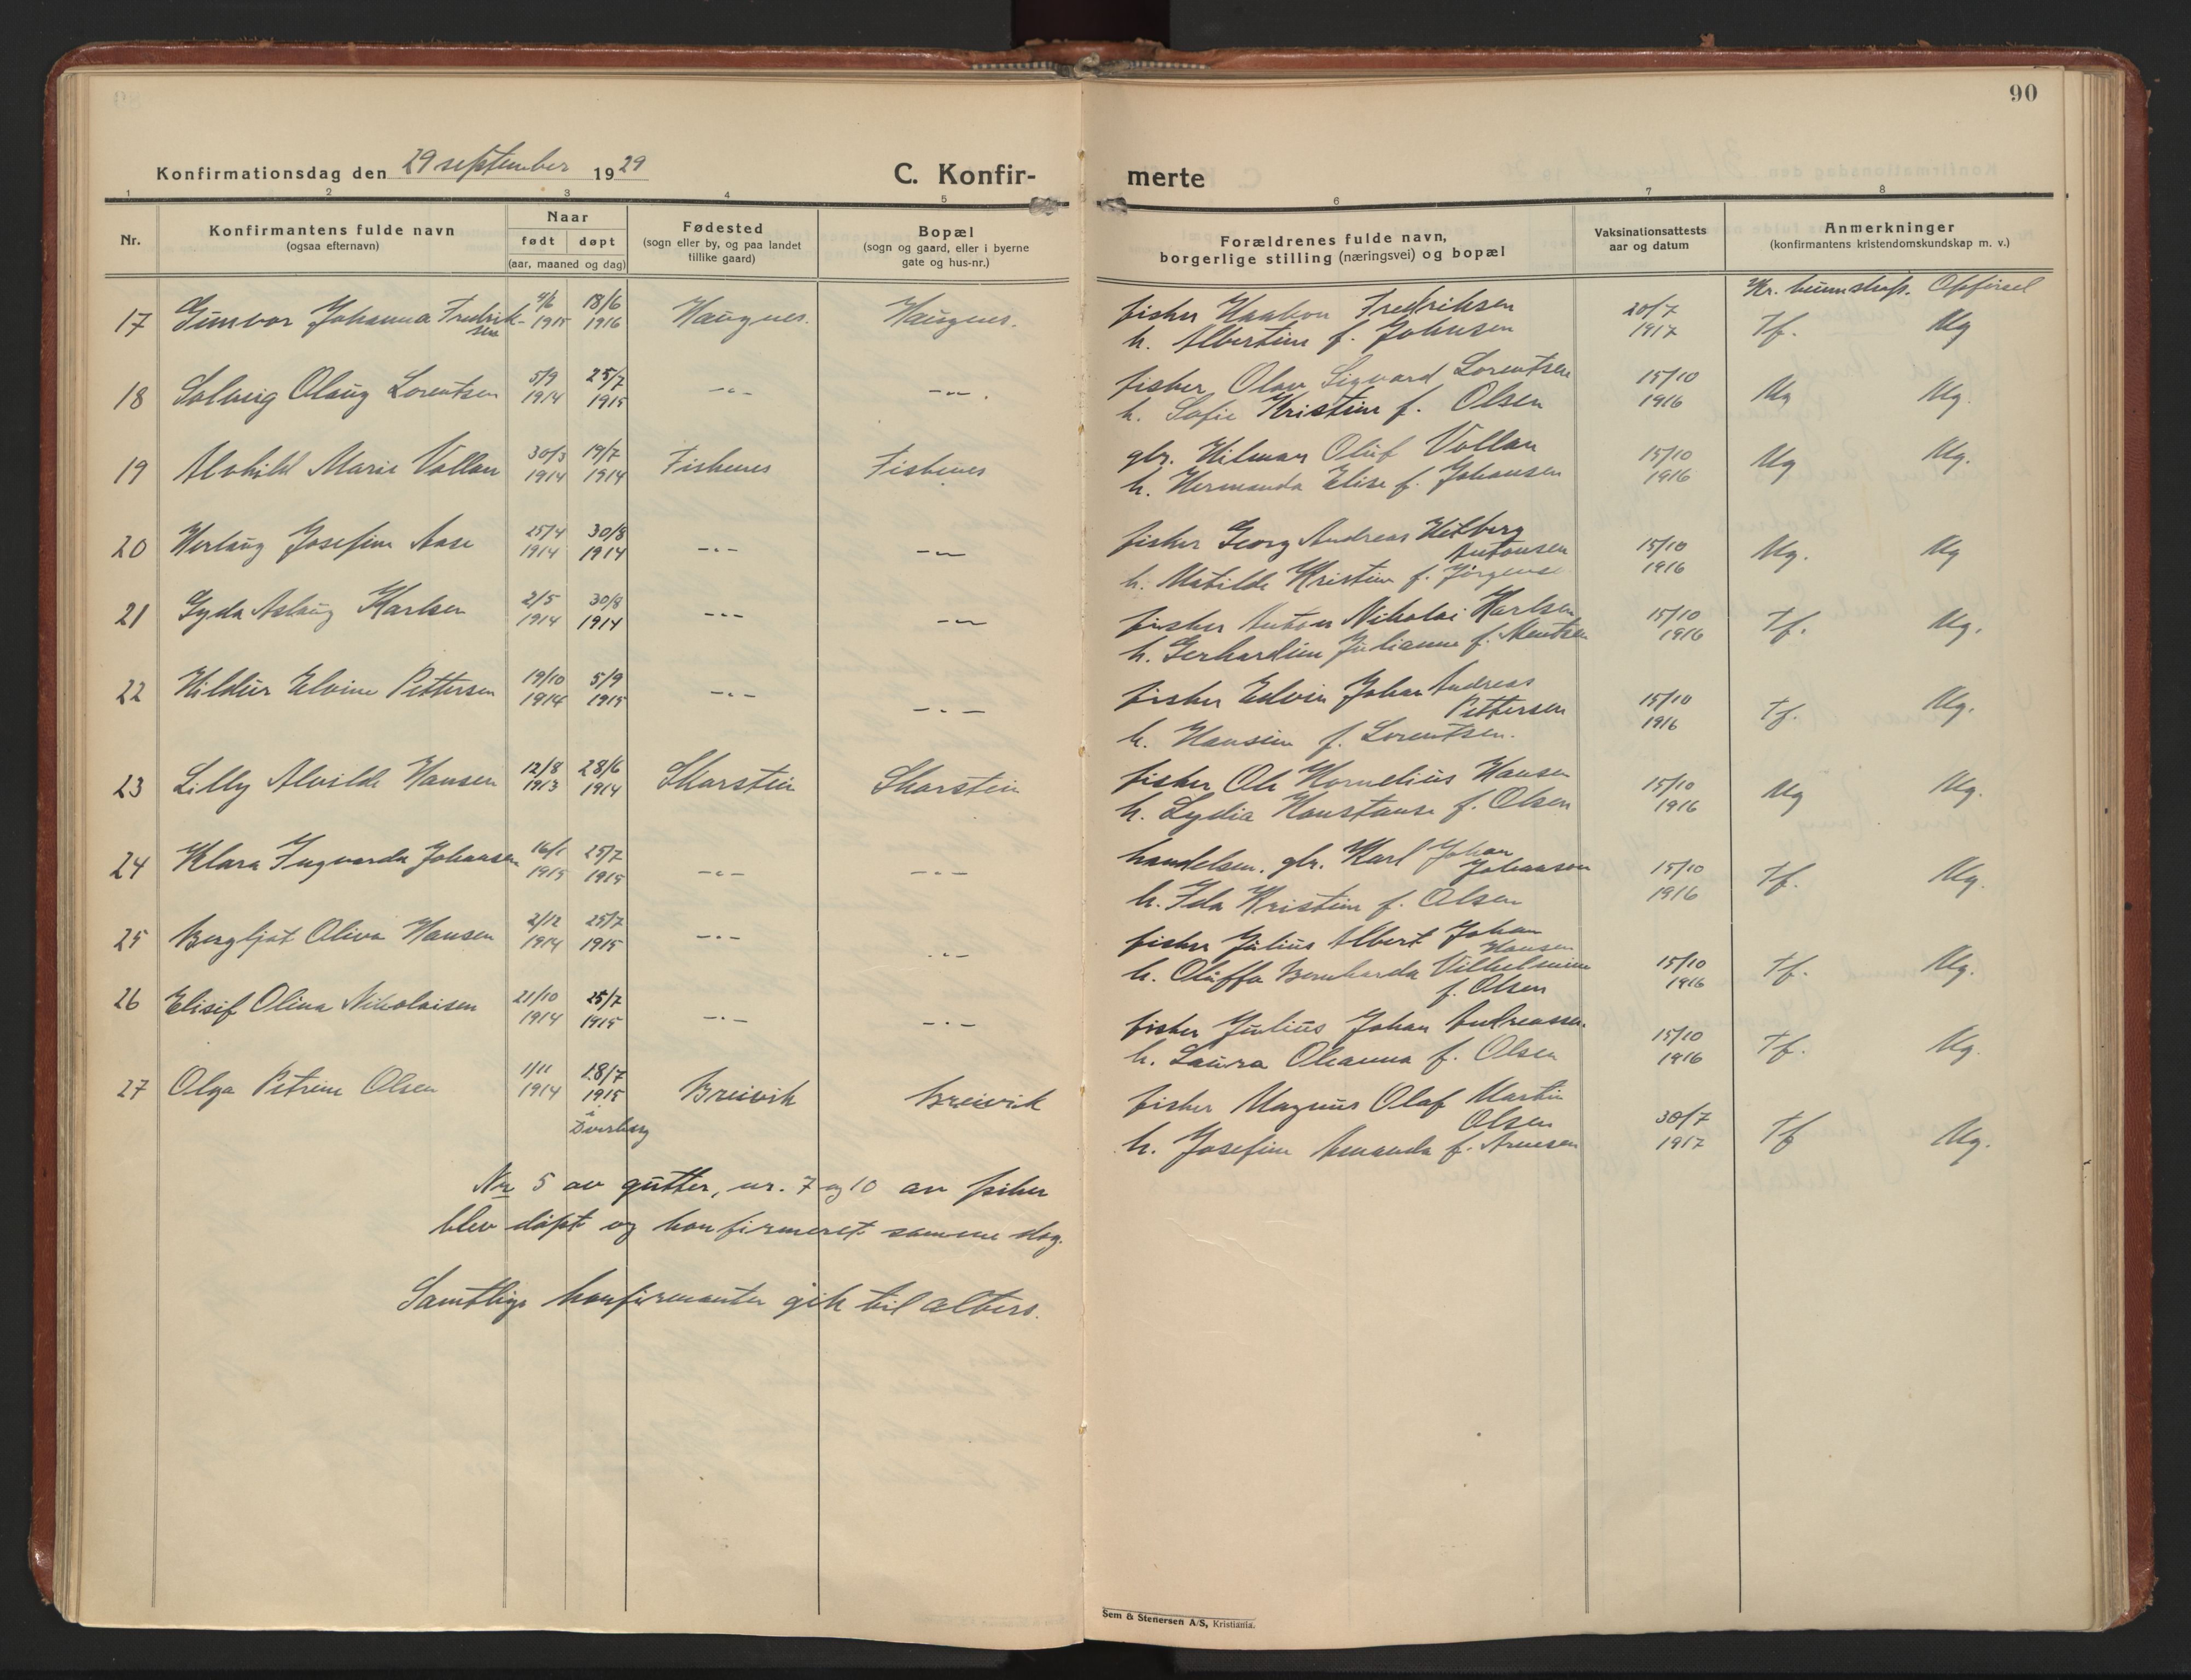 90
Konfirmationsdag den 29 september 1929
C. Konfir-
merte
1 2 3 4 5 6 7 8
Nr.
Konfirmantens fulde navn
(ogsaa efternavn)
Naar
født døpt
(aar, maaned og dag)
Fødested
(sogn eller by, og paa landet
tillike gaard)
Bopæl
(sogn og gaard, eller i byerne
gate og hus-nr.)
Forældrenes fulde navn,
borgerlige stilling (næringsvei) og bopæl
Vaksinationsattests
aar og datum
Anmerkninger
(konfirmantens kristendomskundskap m. v.)
Kr. kunnskap. Opførsel
17 Gunvor Johanna Fredrik- 4/6 1915 18/6 1916 Haugnes. Haugnes. fisker Haakon Fredriksen 20/7 1917 Tf. Mg
sen h. Albertine f. Johnsen
18 Solveig Olaug Lorentsen 5/9 1914 25/7 1915 -"- -"-. fisker Olav Sigvard Lorentsen 15/10 1916 Mg Mg.
h. Sofie Kristine f. Olsen
19 Alvhild Marie Vollan 30/3 1914 19/7 1914 Fiskenes Fiskenes gbr. Hilmar Oluf Vollan 15/10 1916 Mg Mg.
h. Hermanda Elise f. Johansen
20 Herlaug Josefine Aase 25/4 1914 30/8 1914 -"- -"- fisker Georg Andreas Hilberg
Antonsen 15/10 1916 Mg. Mg
h. Matilde Kristine f. Jørgense
21 Gyda Aslaug Karlsen 2/5 1914 30/8 1914 -"- -"- fisker Anton Nikolai Karlsen 15/10 1916 Tf. Mg.
h. Gerhardine Julianne f. Mentsen
22 Hildur Elvine Pettersen 19/10 1914 5/9 1915 -"- -"- fisker Edvin Johan Andreas
Pettersen 15/10 1916 Tf. Mg.
h. Hansine f. Lorentsen.
23 Lilly Alvilde Hansen 12/8 1913 28/6 1914 Skarstein Skarstein fisker Ole Kornelius Hansen 15/10 1916 Mg Mg.
h. Lydia Konstanse f. Olsen
24 Klara Ingvarda Johansen 16/1 1915 25/7 1915 -"- -"- handelsm. gbr. Karl Johan
Johansen 15/10 1916 Tf. Mg.
h. Ida Kristine f. Olsen
25 Bergljot Oliva Hansen 2/12 1914 25/7 1915 -"- -"- fisker Julius Albert Johan
Hansen
h. Oluffa Bernharda Vilhelmine 15/10 1916 Tf. Mg.
f. Olsen
26 Elisif Olina Nikolaisen 21/10 1914 25/7 1915 -"- -"- fisker Julius Johan Andreassen 15/10 1916 Tf. Mg.
h. Laura Oleanna f. Olsen
27 Olga Petrine Olsen 1/11 1914 18/7 1915 i Dverberg Breivik Breivik fisker Magnus Olaf Martin
Olsen 30/7 1917 Tf Mg.
h. Josefine Amanda f. Arnesen
Nr 5 av gutter, nr. 7 og 10 av piker
blev døpt og konfirmeret samme dag.
Samtlige konfirmanter gik til alters.
Sem & Stenersen A/S, Kristiania.